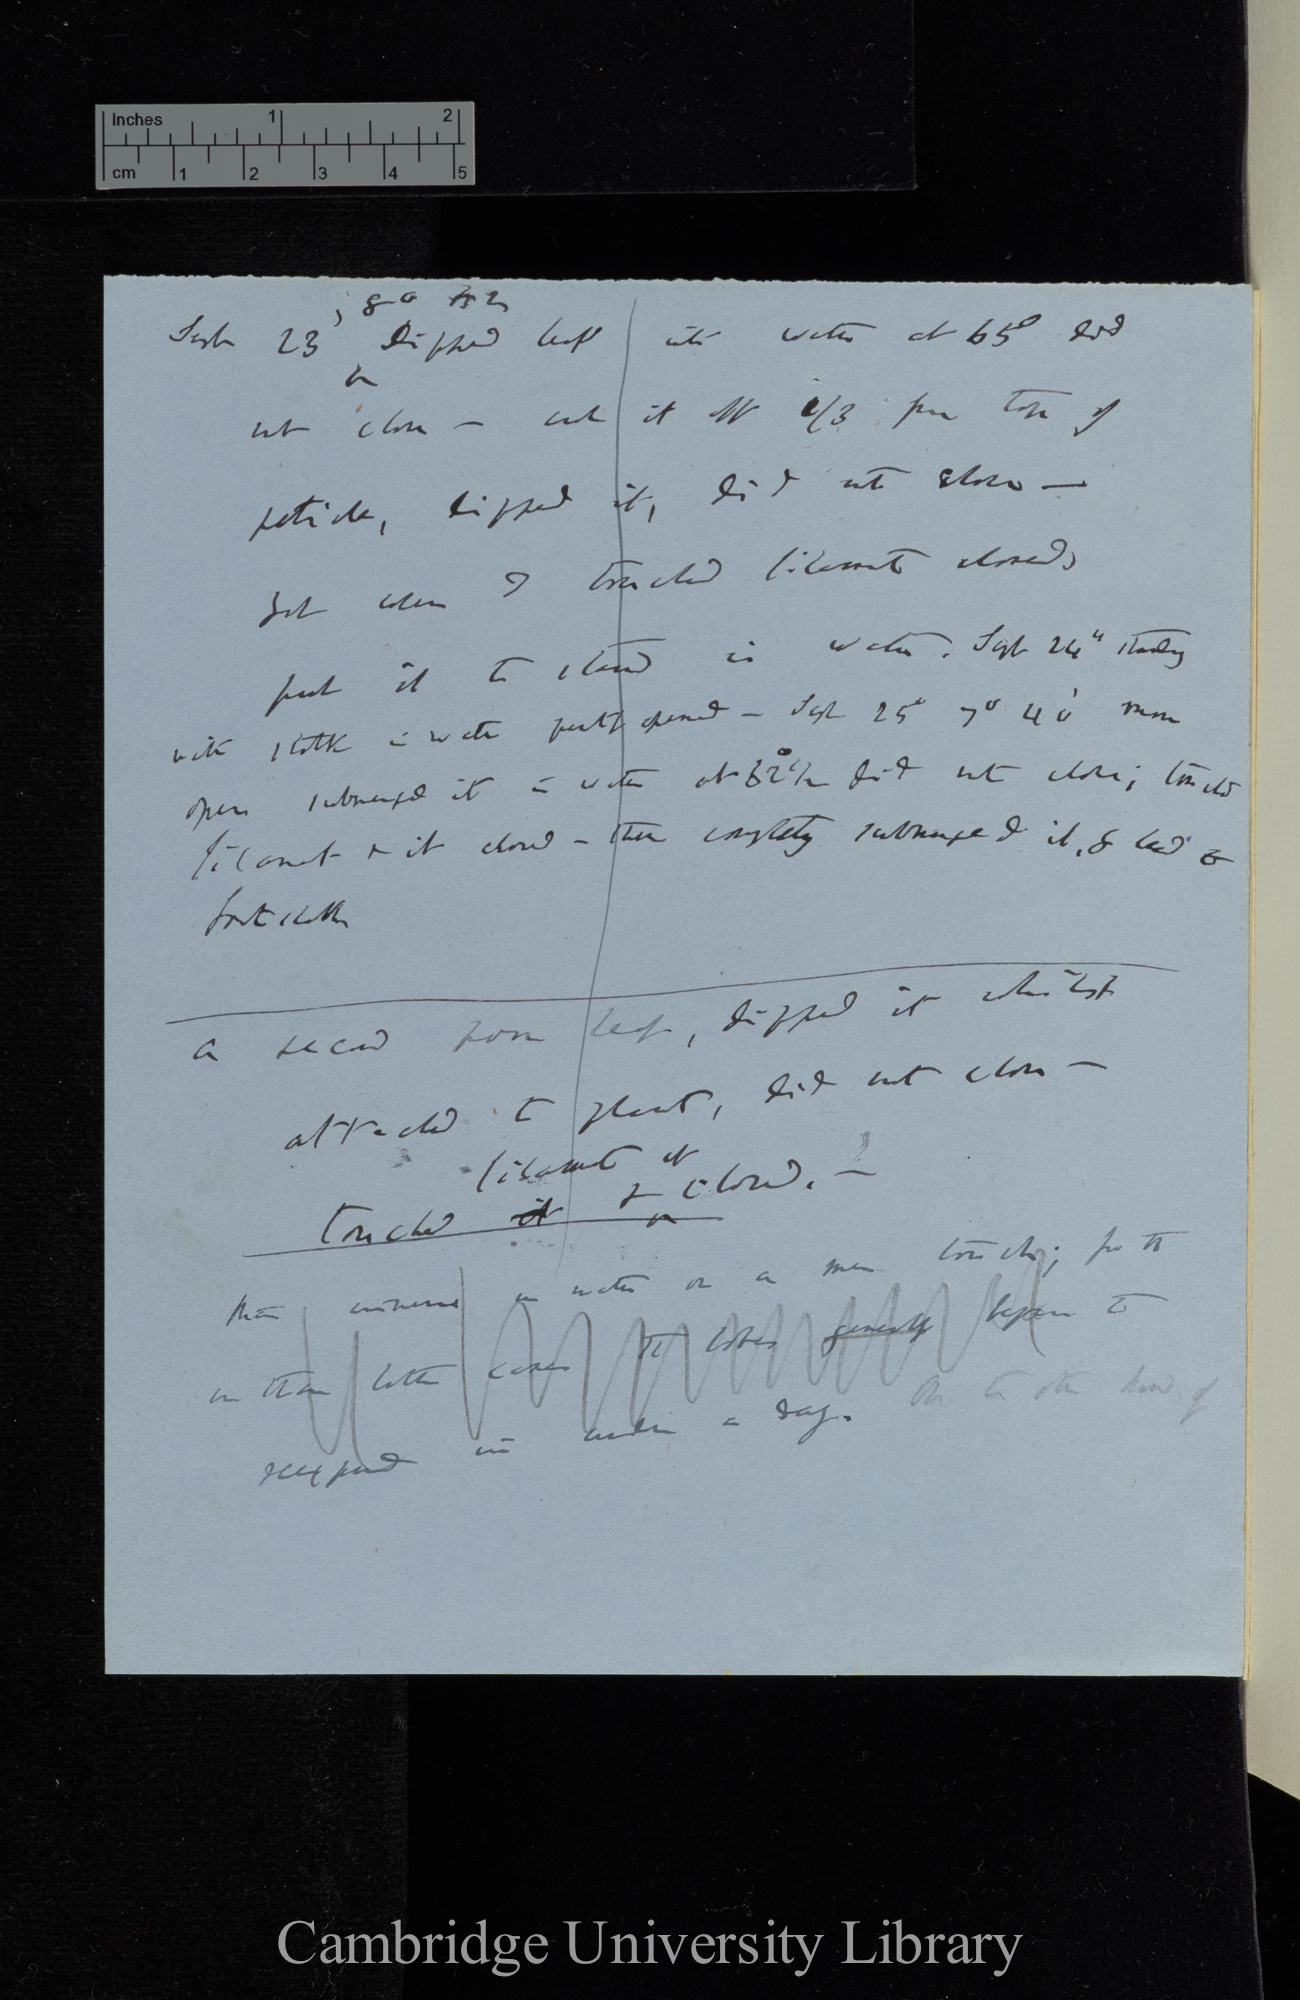 Inches 1 2
cm 1 2 3 4 5
Sept 23 dipped leaf into water at 65° did
not close — cut it off 1/3 from top of
petiole, dipped it, did not close —
but when I touched filament closed,
put it to stand in water. Sept 24" standing
with stalk in water partly opened — Sept 25° 7° 40' more
open submerged it in water at did not close; touched
filament & it closed — then completely submerged it, &
a second leaf, dipped it whilst
attached to plant, did not close —
filament it
touched it & closed. —
immersed in water or a touch; for
in these latter cases the lobes generally began to
reexpand in under a day. of
Cambridge University Library